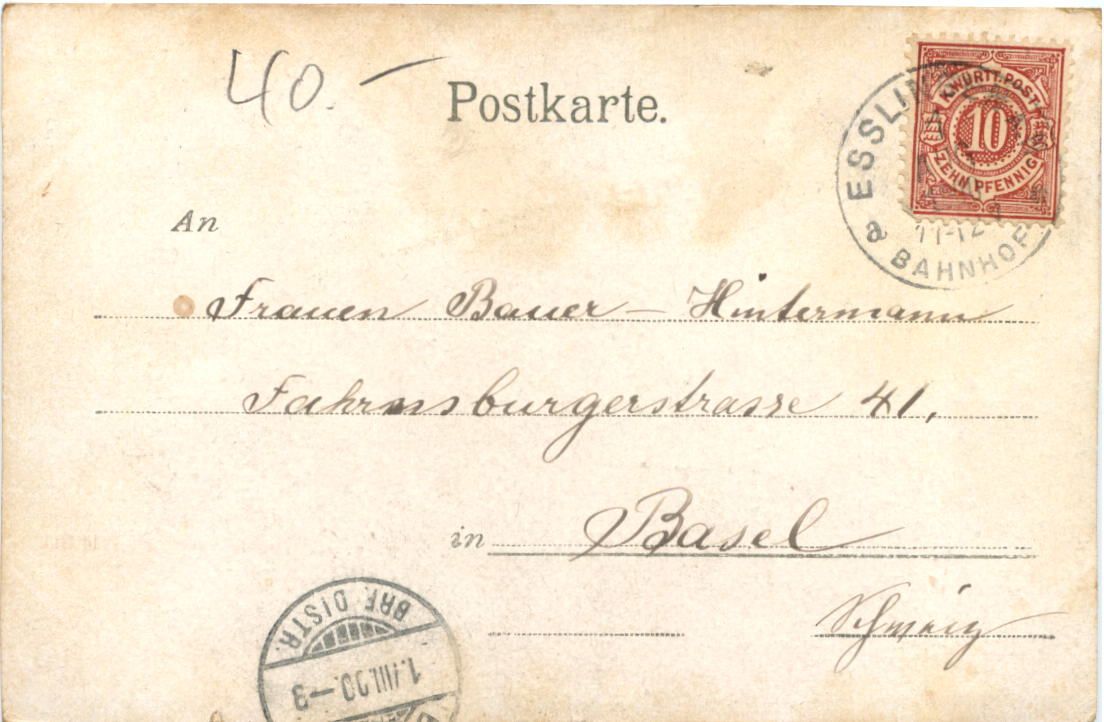 40.–
Postkarte.
K.WÜRTT.POST
10
ZEHN PFENNIG
11-12
BAHNHOF
An
Frauen Bauer – Hintermann
Fahrnsburgerstrasse 41,
in Basel
Schweiz
BRF. DISTR.